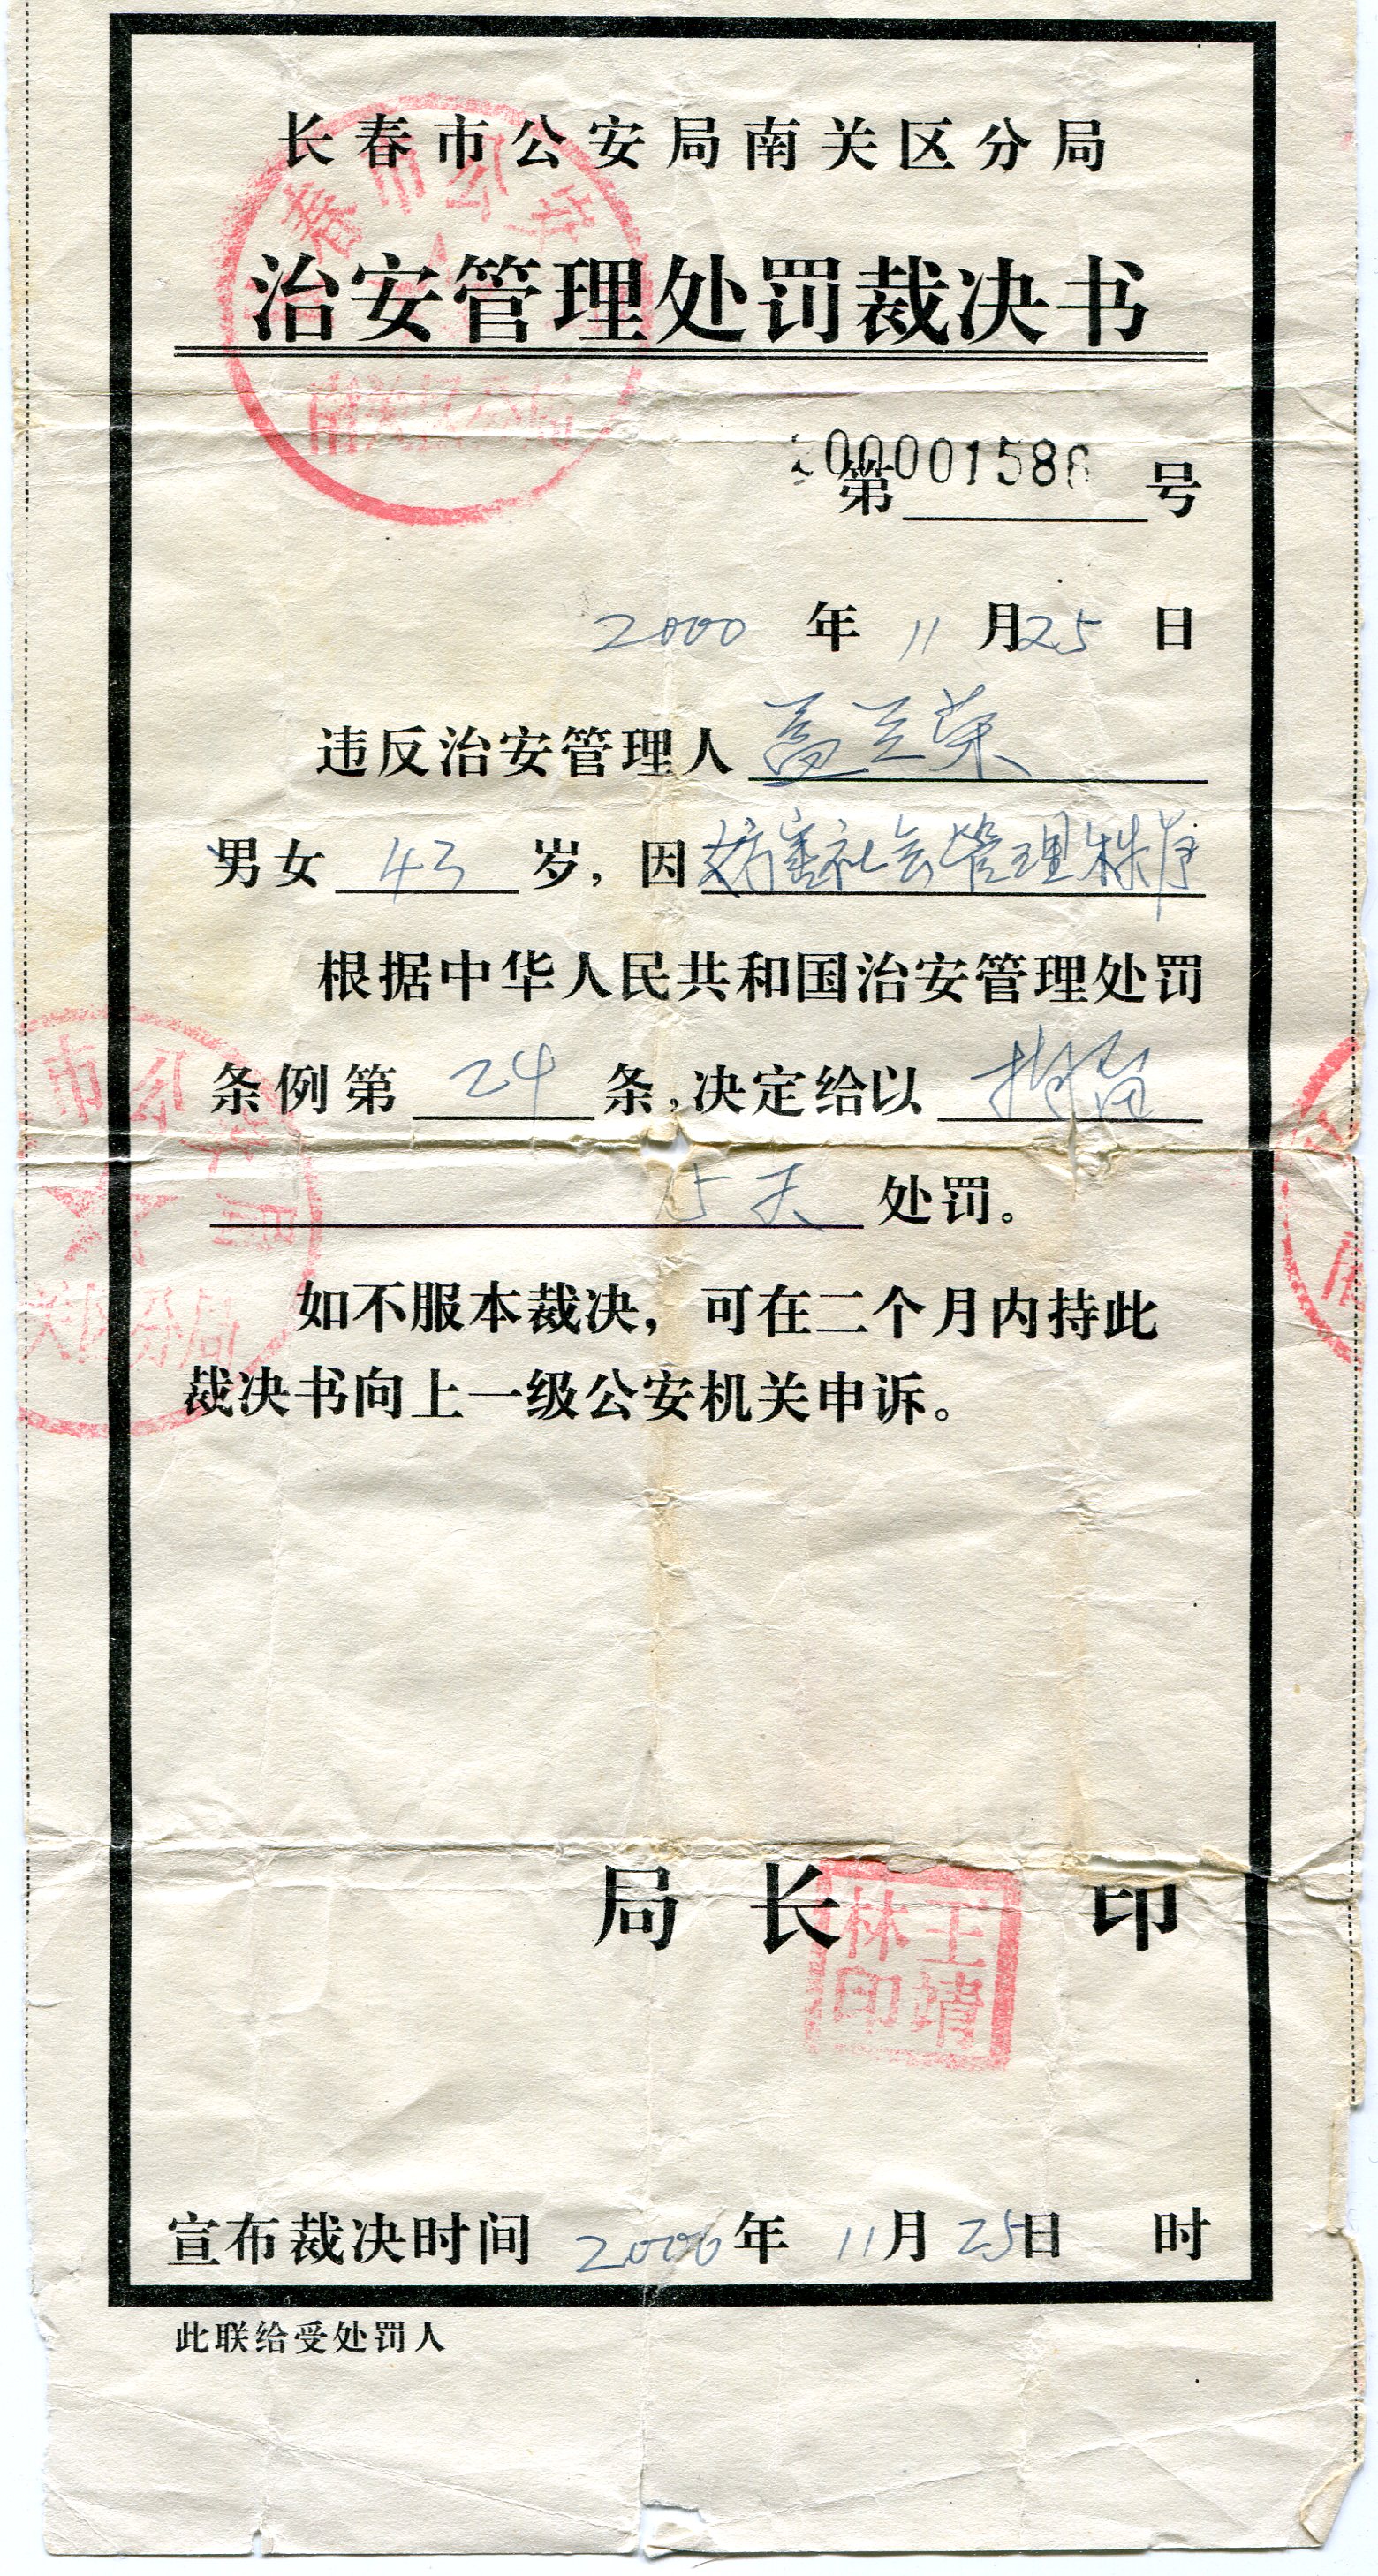 长春市公安局南关区分局
治安管理处罚裁决书
第200001586号
2000年11月25日
违反治安管理人孟兰荣
男女43岁，因妨害社会管理秩序
根据中华人民共和国治安管理处罚
条例第24条，决定给以拘留
15天处罚。
如不服本裁决，可在二个月内持此
裁决书向上一级公安机关申诉。
局长 印
王靖
林印
宣布裁决时间2000年11月25日 时
此联给受处罚人
春市公安
南关区分局
市公安局
关区分局